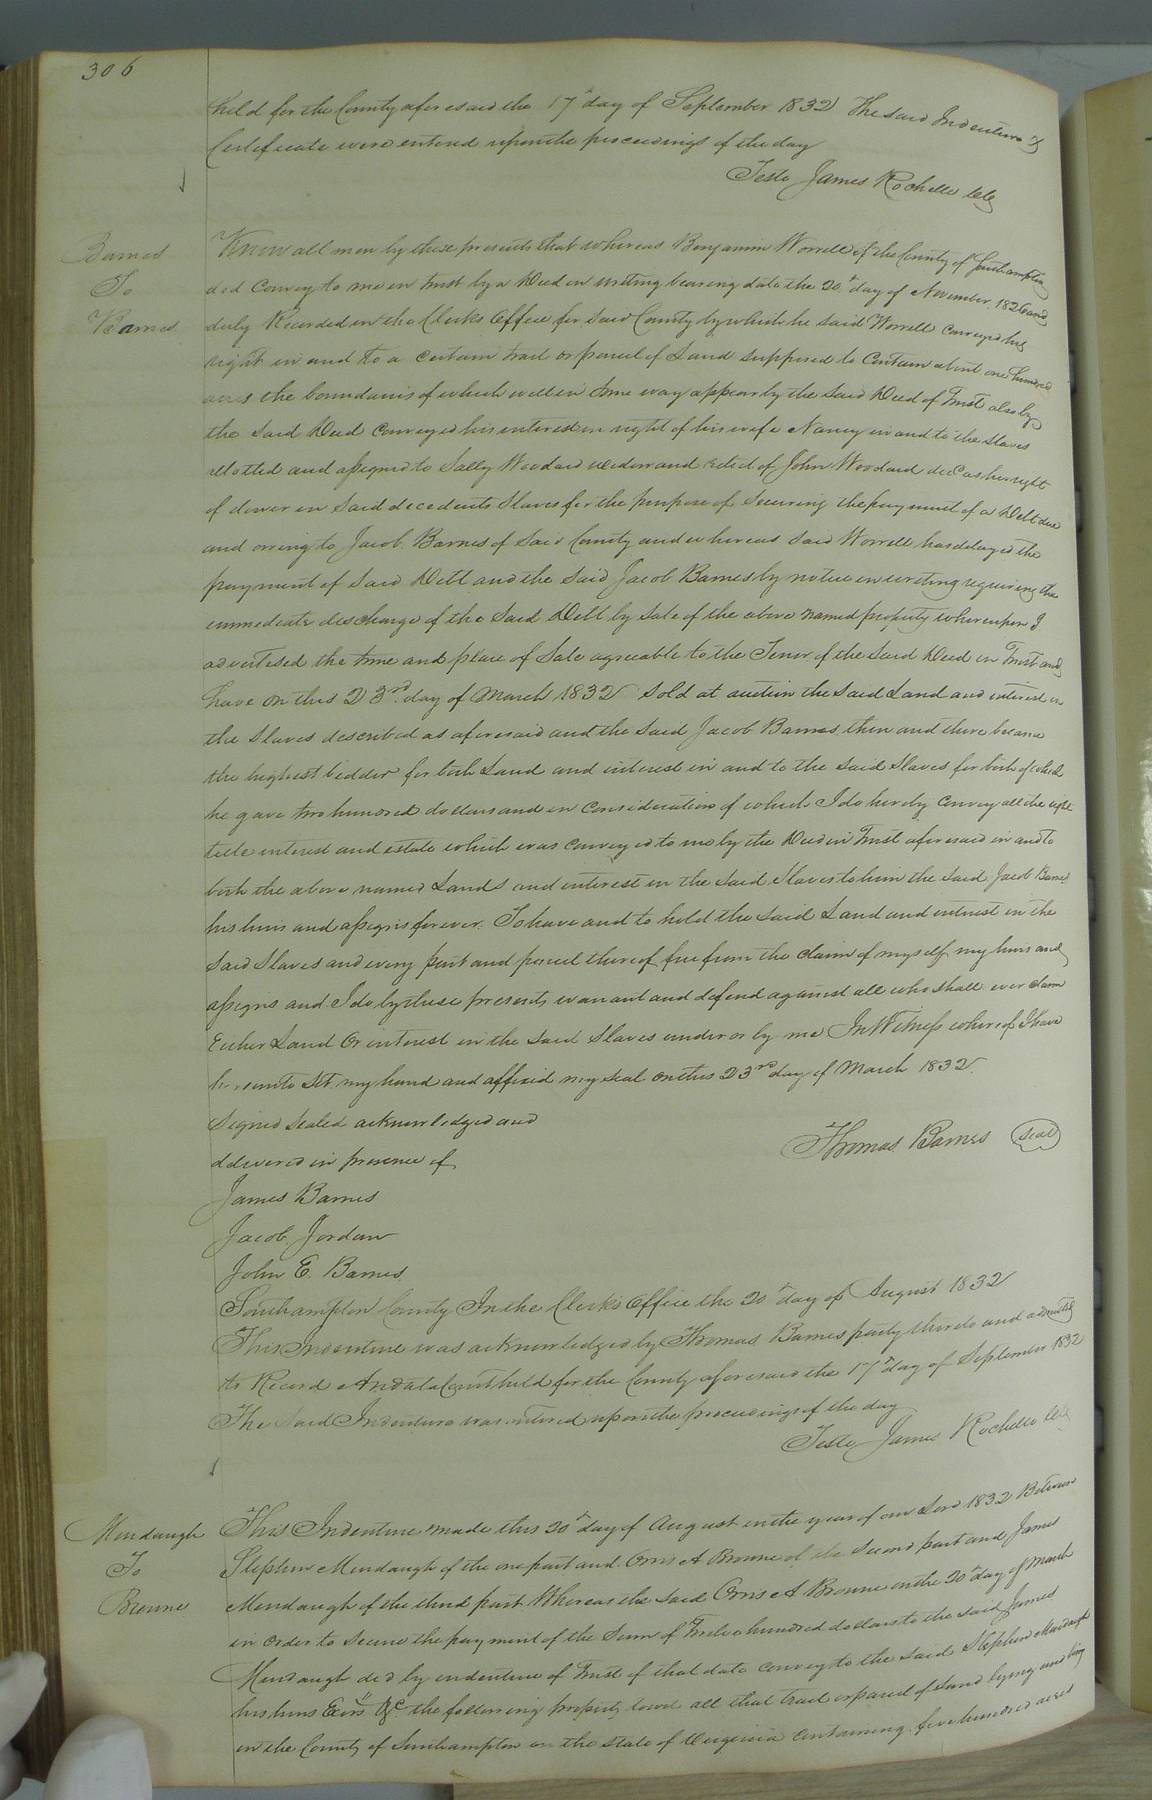 306
held for the County aforesaid the 17th day of September 1832 The said Indenture &
Certificate were entered upon the proceedings of the day
Teste James Rochelle Clk
Barnes
To
Barnes
Know all men by these presents that whereas Benjamin Worrell of the County of Southampton
did Convey to me in trust by a Deed in writing bearing date the 20th day of November 1826 and
duly Recorded in the Clerks Office for said County by which he said Worrell conveyed his
right in and to a certain tract or parcel of Land supposed to Contain about one hundred
acres the boundaries of which will in time way appear by the said Deed of Trust also by
the said Deed Conveyed his interest in right of his wife Nancy in and to the slaves
allotted and assigned to Sally Woodard widow and relict of John Woodard decd as her right
of dower in said decedents slaves for the purpose of securing the payment of a Debt due
and owing to Jacob Barnes of said County and whereas said Worrell has delayed the
payment of said Debt and the said Jacob Barnes by notice in writing requiring the
immediate discharge of the said Debt by sale of the above named property whereupon I
advertised the time and place of Sale agreeable to the Tenor of the said Deed in Trust and
have on this 23rd day of March 1832 Sold at auction the said Land and interest in
the slaves described as aforesaid and the said Jacob Barnes then and there became
the highest bidder for both Land and interest in and to the said slaves for both of which
he gave two hundred dollars and in consideration of which I do hereby convey all the right
title interest and estate which was conveyed to me by the Deed in Trust aforesaid in and to
both the above named Lands and interest in the said Slaves to him the said Jacob Barnes
his heirs and assigns forever. To have and to hold the said Land and interest in the
said Slaves and every part and parcel thereof free from the claim of myself my heirs and
assigns and I do by these presents warrant and defend against all who shall ever claim
Either Land or interest in the said slaves under or by me In Witness whereof I have
hereunto Set my hand and affixed my seal on this 23rd day of March 1832.
Signed sealed acknowledged and
delivered in presence of
Thomas Barnes Seal
James Barnes
Jacob Jordan
John E. Barnes
Southampton County In the Clerks Office the 20th day of August 1832
This Indenture was acknowledged by Thomas Barnes party thereto and admitted
to Record And at a Court held for the County aforesaid the 17th day of September 1832
The said Indenture was entered upon the proceedings of the day
Teste James Rochelle Clk
Mundaugh
To
Browne
This Indenture made this 20th day of August in the year of our Lord 1832 Between
Stephen Mundaugh of the one part and Orris A Browne of the second part and James
Mundaugh of the third part Whereas the said Orris A Browne on the 20th day of March
in order to secure the payment of the Sum of Twelve hundred dollars to the said James
Mundaugh did by indenture of Trust of that date convey to the said Stephen Mundaugh
his heirs Exrs &c. the following property towit all that tract or parcel of Land lying and being
in the County of Southampton in the State of Virginia containing five hundred acres